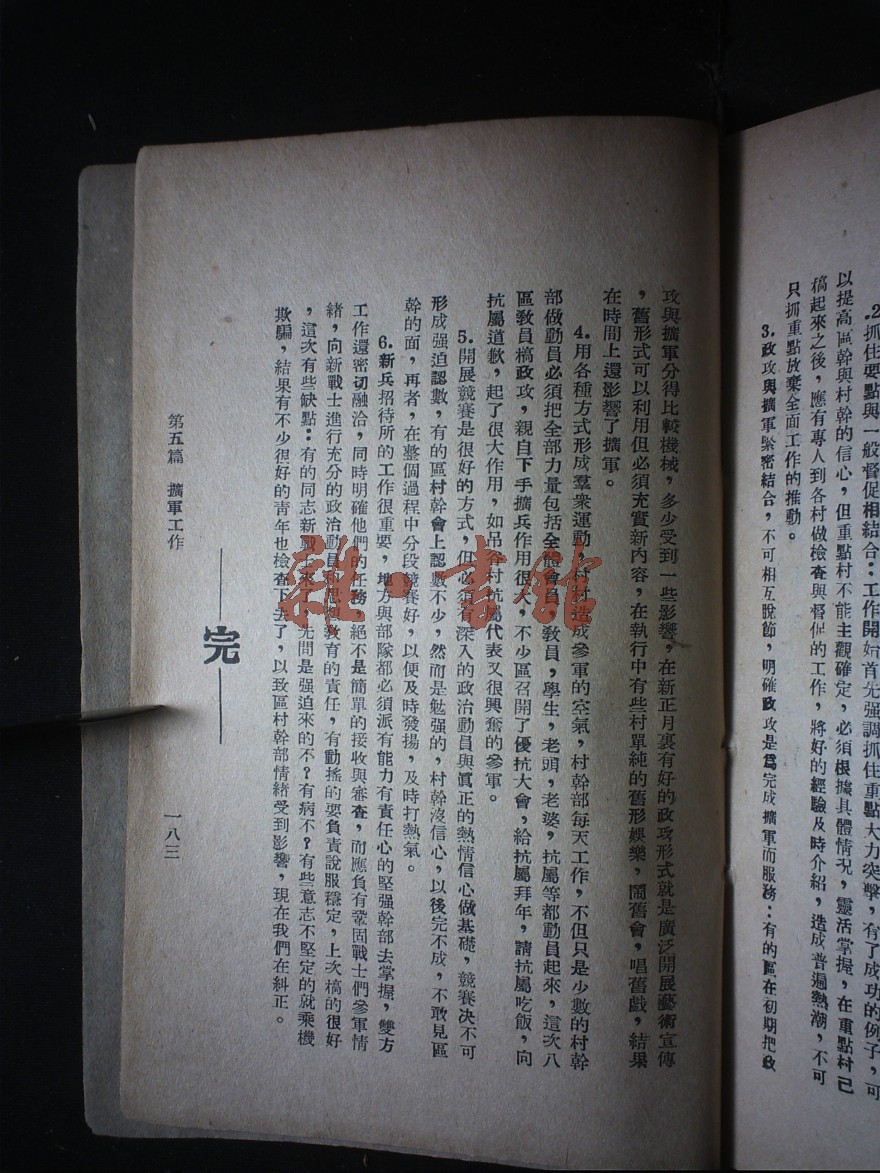 .2抓住要點與一般督促相結合：工作開始首先强調抓住重點大力突擊，有了成功的例子，可
以提高區幹與村幹的信心，但重點村不能主觀確定，必須根據具體情况，靈活掌握，在重點村已
稿起來之後，應有專人到各村做檢查與督促的工作，將好的經驗及時介紹，造成普遍熱潮，不可
只抓重點放棄全面工作的推動。
3.政攻與擴軍緊密結合，不可相互脫節，明確政攻是爲完成擴軍而服務：有的區在初期把政
攻與擴軍分得比較機械，多少受到一些影響，在新正月裏有好的政攻形式就是廣泛開展藝術宣傳
，舊形式可以利用但必須充實新內容，在執行中有些村單純的舊形娛樂，鬧舊會，唱舊戲，結果
在時間上還影響了擴軍。
4.用各種方式形成羣衆運動，村村造成參軍的空氣，村幹部每天工作，不但只是少數的村幹
部做動員必須把全部力量包括全體會員，敎員，學生，老頭，老婆，抗屬等都動員起來，這次八
區敎員稿政攻，親自下手擴兵作用很大，不少區召開了優抗大會，給抗屬拜年，請抗屬吃飯，向
抗屬道歉，起了很大作用，如吊谷村抗屬代表又很興奮的參軍。
5.開展競賽是很好的方式，但必須有深入的政治動員與眞正的熱情信心做基礎，競賽決不可
形成强迫認數，有的區村幹會上認數不少，然而是勉强的，村幹沒信心，以後完不成，不敢見區
幹的面，再者，在整個過程中分段競賽好，以便及時發揚，及時打熱氣。
6.新兵招待所的工作很重要，地方與部隊都必須派有能力有責任心的堅强幹部去掌握，雙方
工作還密切融洽，同時明確他們的任務，絕不是簡單的接收與審查，而應負有鞏固戰士們參軍情
緒，向新戰士進行充分的政治動員和思想敎育的責任，有動搖的要負責說服穩定，上次稿的很好
，這次有些缺點：有的同志新戰士來了，先問是强迫來的不？有病不？有些意志不堅定的就乘機
欺騙，結果有不少很好的靑年也檢查下去了，以致區村幹部情緖受到影響，現在我們在糾正。
——完——
第五篇 擴軍工作
一八三
雜一書館